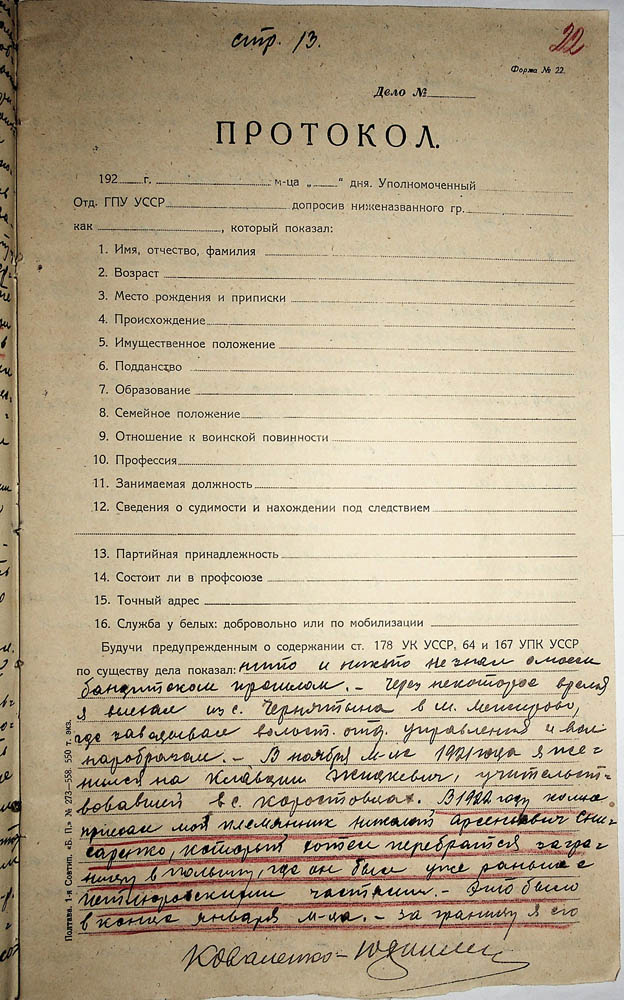 стр. 13.
22
Форма № 22.
Дело №
ПРОТОКОЛ.
192 г. м-ца „ “ дня. Уполномоченный
Отд. ГПУ УССР допросив ниженазванного гр.
как , который показал:
1. Имя, отчество, фамилия
2. Возраст
3. Место рождения и приписки
4. Происхождение
5. Имущественное положение
6. Подданство
7. Образование
8. Семейное положение
9. Отношение к воинской повинности
10. Профессия
11. Занимаемая должность
12. Сведения о судимости и нахождении под следствием
13. Партийная принадлежность
14. Состоит ли в профсоюзе
15. Точный адрес
16. Служба у белых: добровольно или по мобилизации
Будучи предупрежденным о содержании ст. 178 УК УССР, 64 и 167 УПК УССР
по существу дела показал: никто и никто не знал о моем
бандитском прошлом. – Через некоторое время
я выехал из с. Чернятына в м. Межирово,
где заведывал волост. отд. управления и вол
наробразом. – В ноябре м-це 1921 года я же-
нился на Клавдии Жидкевич, учительст-
вовавшей в с. Коростовцах. В 1922 году ко мне
приехал мой племянник Николай Арсениевич Сни-
саренко, который хотел перебраться загра-
ницу в Польшу, где он был уже раньше с
петлюровскими частями. – Это было
в конце января м-ца. – За границу я его
Коваленко-
Полтава, 1-я Совтип. «Б. П.» № 273—558. 550 т. экз.